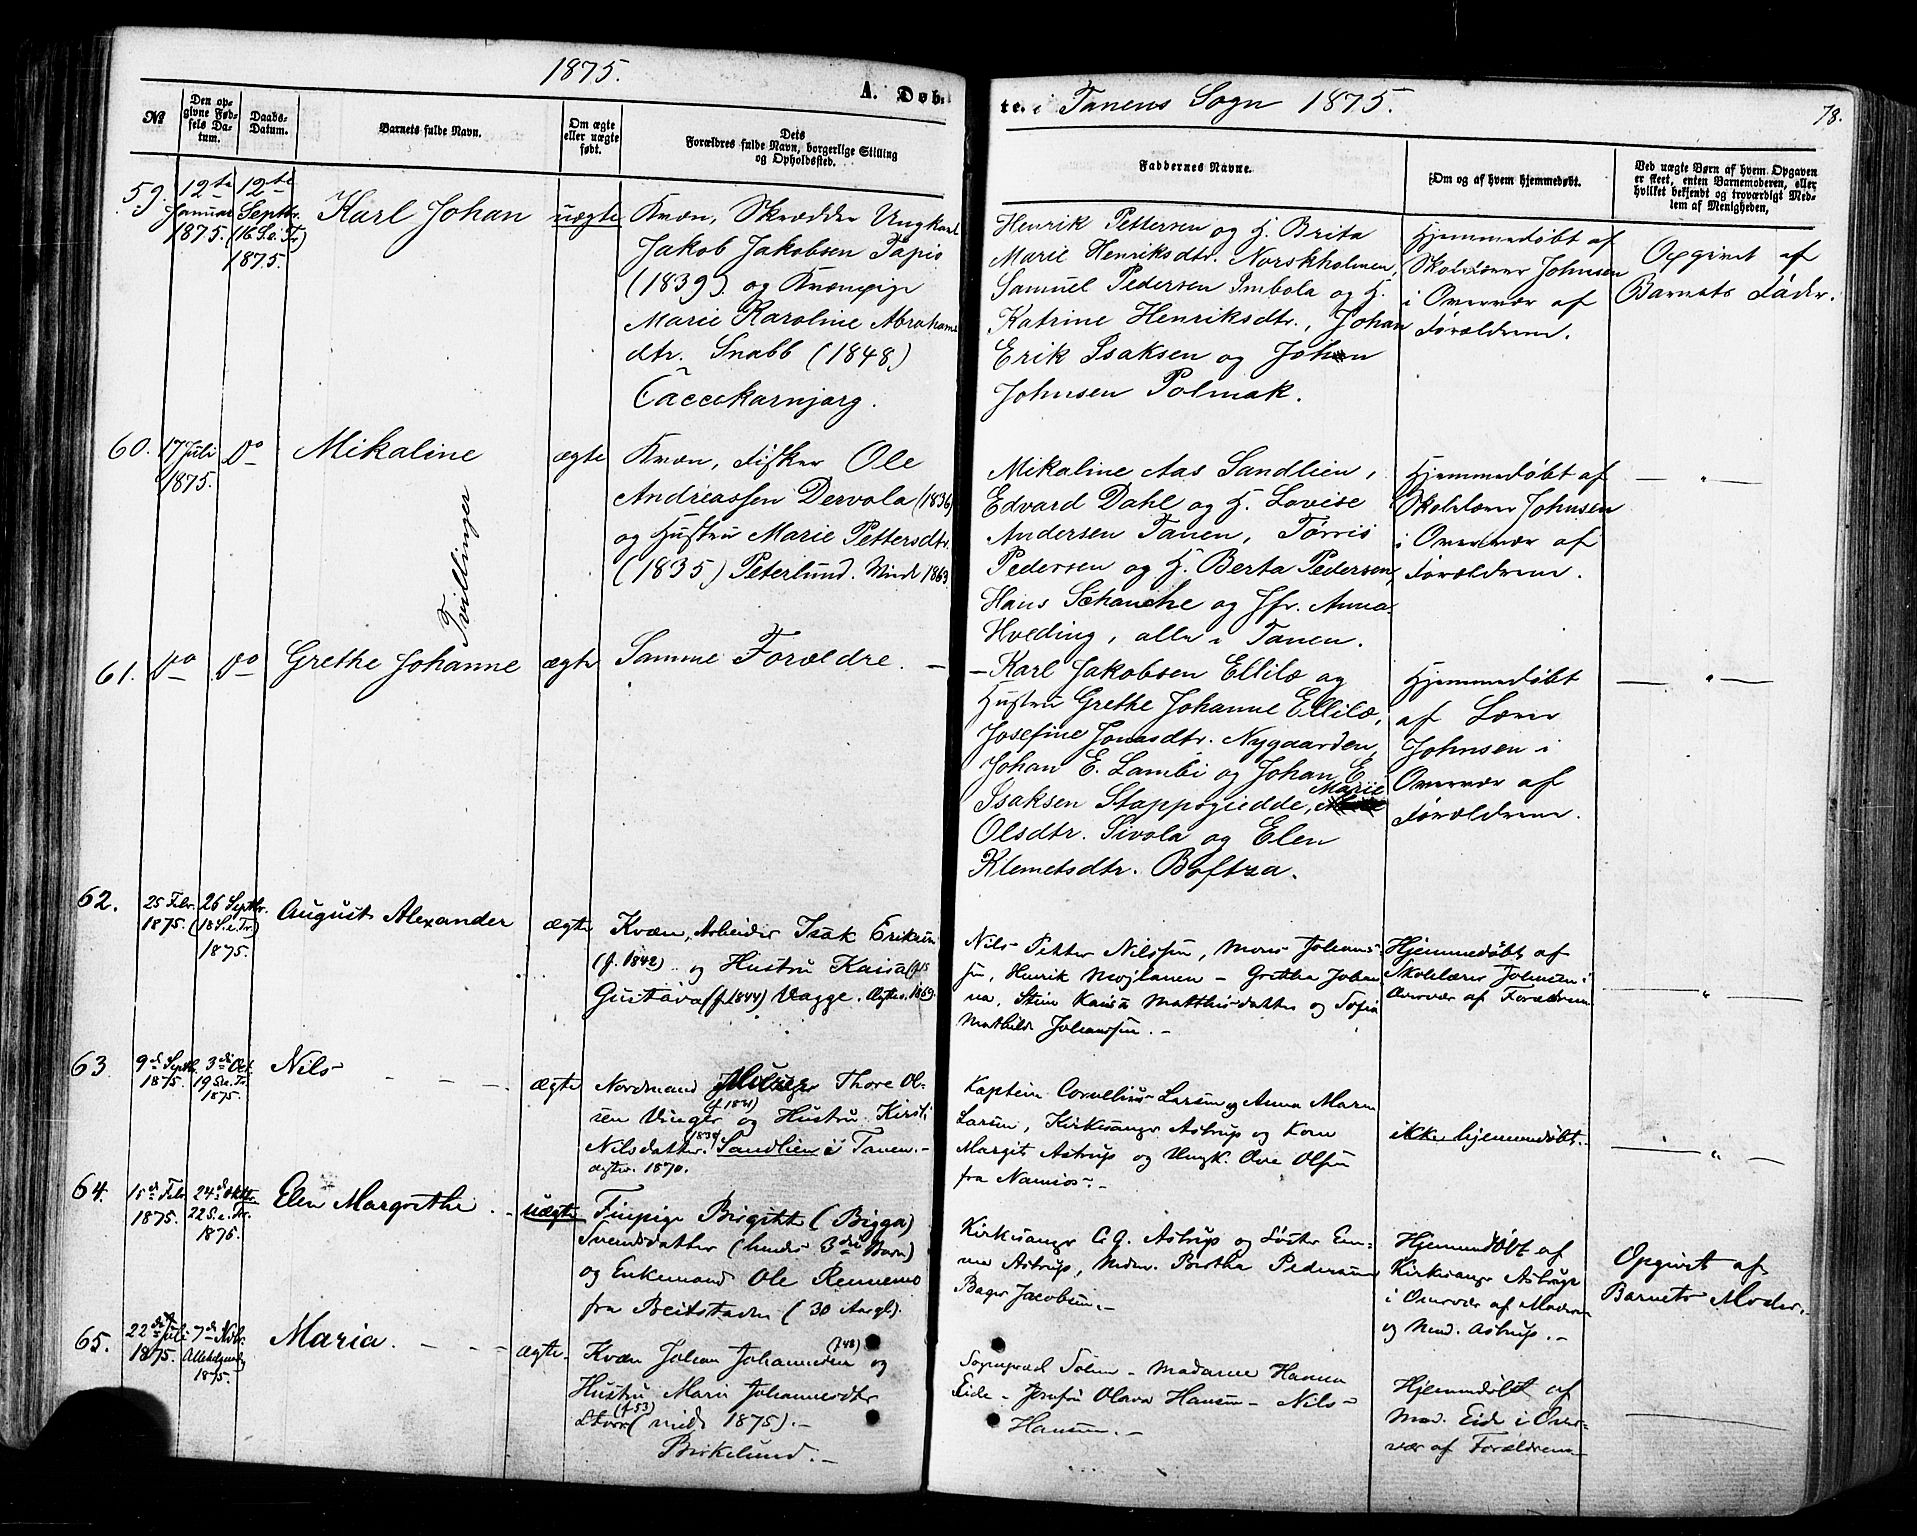 1875.
A. Døb-
te i Tanens Sogn 1875.
78.
No
Den op-
givne Fød-
sels Da-
tum.
Daabs-
Datum.
Barnets fulde Navn.
Om ægte
eller uægte
født.
Dets
Forældres fulde Navn, borgerlige Stilling
og Opholdssted.
Faddernes Navne.
Om og af hvem hjemmedøbt.
Ved uægte Børn af hvem Opgaven
er skeet, enten Barnemoderen, eller
hvilket bekjendt og troværdigt Med-
lem af Menigheden,
59.
12te
Januar
1875.
12te
Septbr.
(16 S. e. Tr)
1875.
Karl Johan
uægte
Kvæn, Skrædder Ungkarl
Jakob Jakobsen Tapio
(1839) og Kvænpige
Marie Karoline Abrahams
dtr. Snabb (1848)
Caccekarnjarg.
Henrik Pettersen og H. Brita
Marie Henriksdtr. Norskholmen,
Samuel Pedersen Imbola og H.
Katrine Henriksdtr., Johan
Erik Isaksen og Johan
Johnsen Polmak.
Hjemmedøbt af
Skolelærer Johnsen
i Overvær af
Forældrene.
Opgivet af
Barnets Fader.
60.
17 Juli
1875.
Do
Mikaline
Tvillinger
ægte
Kvæn, Fisker Ole
Andreassen Dervola (1836)
og Hustru Marie Pettersdtr.
(1835) Peterlund. Viede 1863
Mikaline Aas Sandlien,
Edvard Dahl og H. Lovise
Andersen Tanen, Tørris
Pedersen og H. Berta Pedersen,
Hans Schanche og Jfr. Anna
Hveding, alle i Tanen.
Hjemmedøbt af
Skolelærer Johnsen
i Overvær af
Forældrene.
— „ —
61.
Do
Do
Grethe Johanne
ægte
Samme Forældre. —
— Karl Jakobsen Ellilæ og
Hustru Grethe Johanne Ellilæ,
Josefine Jonasdtr. Nygaarden,
Johan E. Lambi og Johan E.
Isaksen Stappogiedde, Marie
Olsdtr. Sivola og Elen
Klemetsdtr. Boftsa.
Hjemmedøbt
af Lærer
Johnsen i
Overvær af
Forældrene.
— „ —
62.
25 Febr.
1875.
26 Septbr.
(18 S. e. Tr.)
1875.
August Alexander
ægte
Kvæn, Arbeider Isak Eriksen
(f. 1842) og Hustru Kaisa
Gustava (f. 1844) Vagge. Ægtev. 1869.
Nils Petter Nilssen, Mons Johans-
sen, Henrik Mojlanen — Grethe Johan-
na, Stine Kaisa Matthisdatter og Sofia
Mathilde Johanssen. —
Hjemmedøbt af
Skolelærer Johnsen i
Overvær af Forældrene
— „ —
63
9de Septbr.
1875.
3die Oct.
19 S. e. Tr.
1875.
Nils — — —
ægte
Nordmand Thore Ol-
sen Vinger (f. 1841) og Hustru Kirsti
Nilsdatter 1834 Sandlien i Tanen. —
ægtev. 1870.
Kaptein Cornelius Larsen og Anna Maria
Larsen, Kirkesanger Astrup og Kone
Margit Astrup og Ungk. Ove Olsen
fra Namsos. —
ikke hjemmedøbt.
— „ —
64.
15de Febr.
1875.
24de Oktbr.
22 S. e. Tr.
1875.
Elen Margrethe
uægte
Finpige Birgitte (Bigga)
Svendsdatter (hendes 3die Barn)
og Enkemand Ole Rennemo
fra Beitstaden (30 Aar gl).
Kirkesanger C. G. Astrup og Søster Em-
ma Astrup, Madm. Bertha Pedersen
Bager Jacobsen. —
Hjemmedøbt af
Kirkesanger Astrup
i Overvær af Moderen
og Mad. Astrup. —
Opgivet af
Barnets Moder.
65.
22de Juli
1875.
7de Nobr.
Allehelgensdg
1875.
Maria. — — —
ægte.
Kvæn Johan Johannesen (f. 48) og
Hustru Marie Johannesdtr
(f 53) (viede 1875). —
Birkelund. —
Madame Hanna
Eide — Josefi Olava Hansen — Nils
Hansen. —
Hjemmedøbt af
Mad. Eide i Over-
vær af Forældrene
—